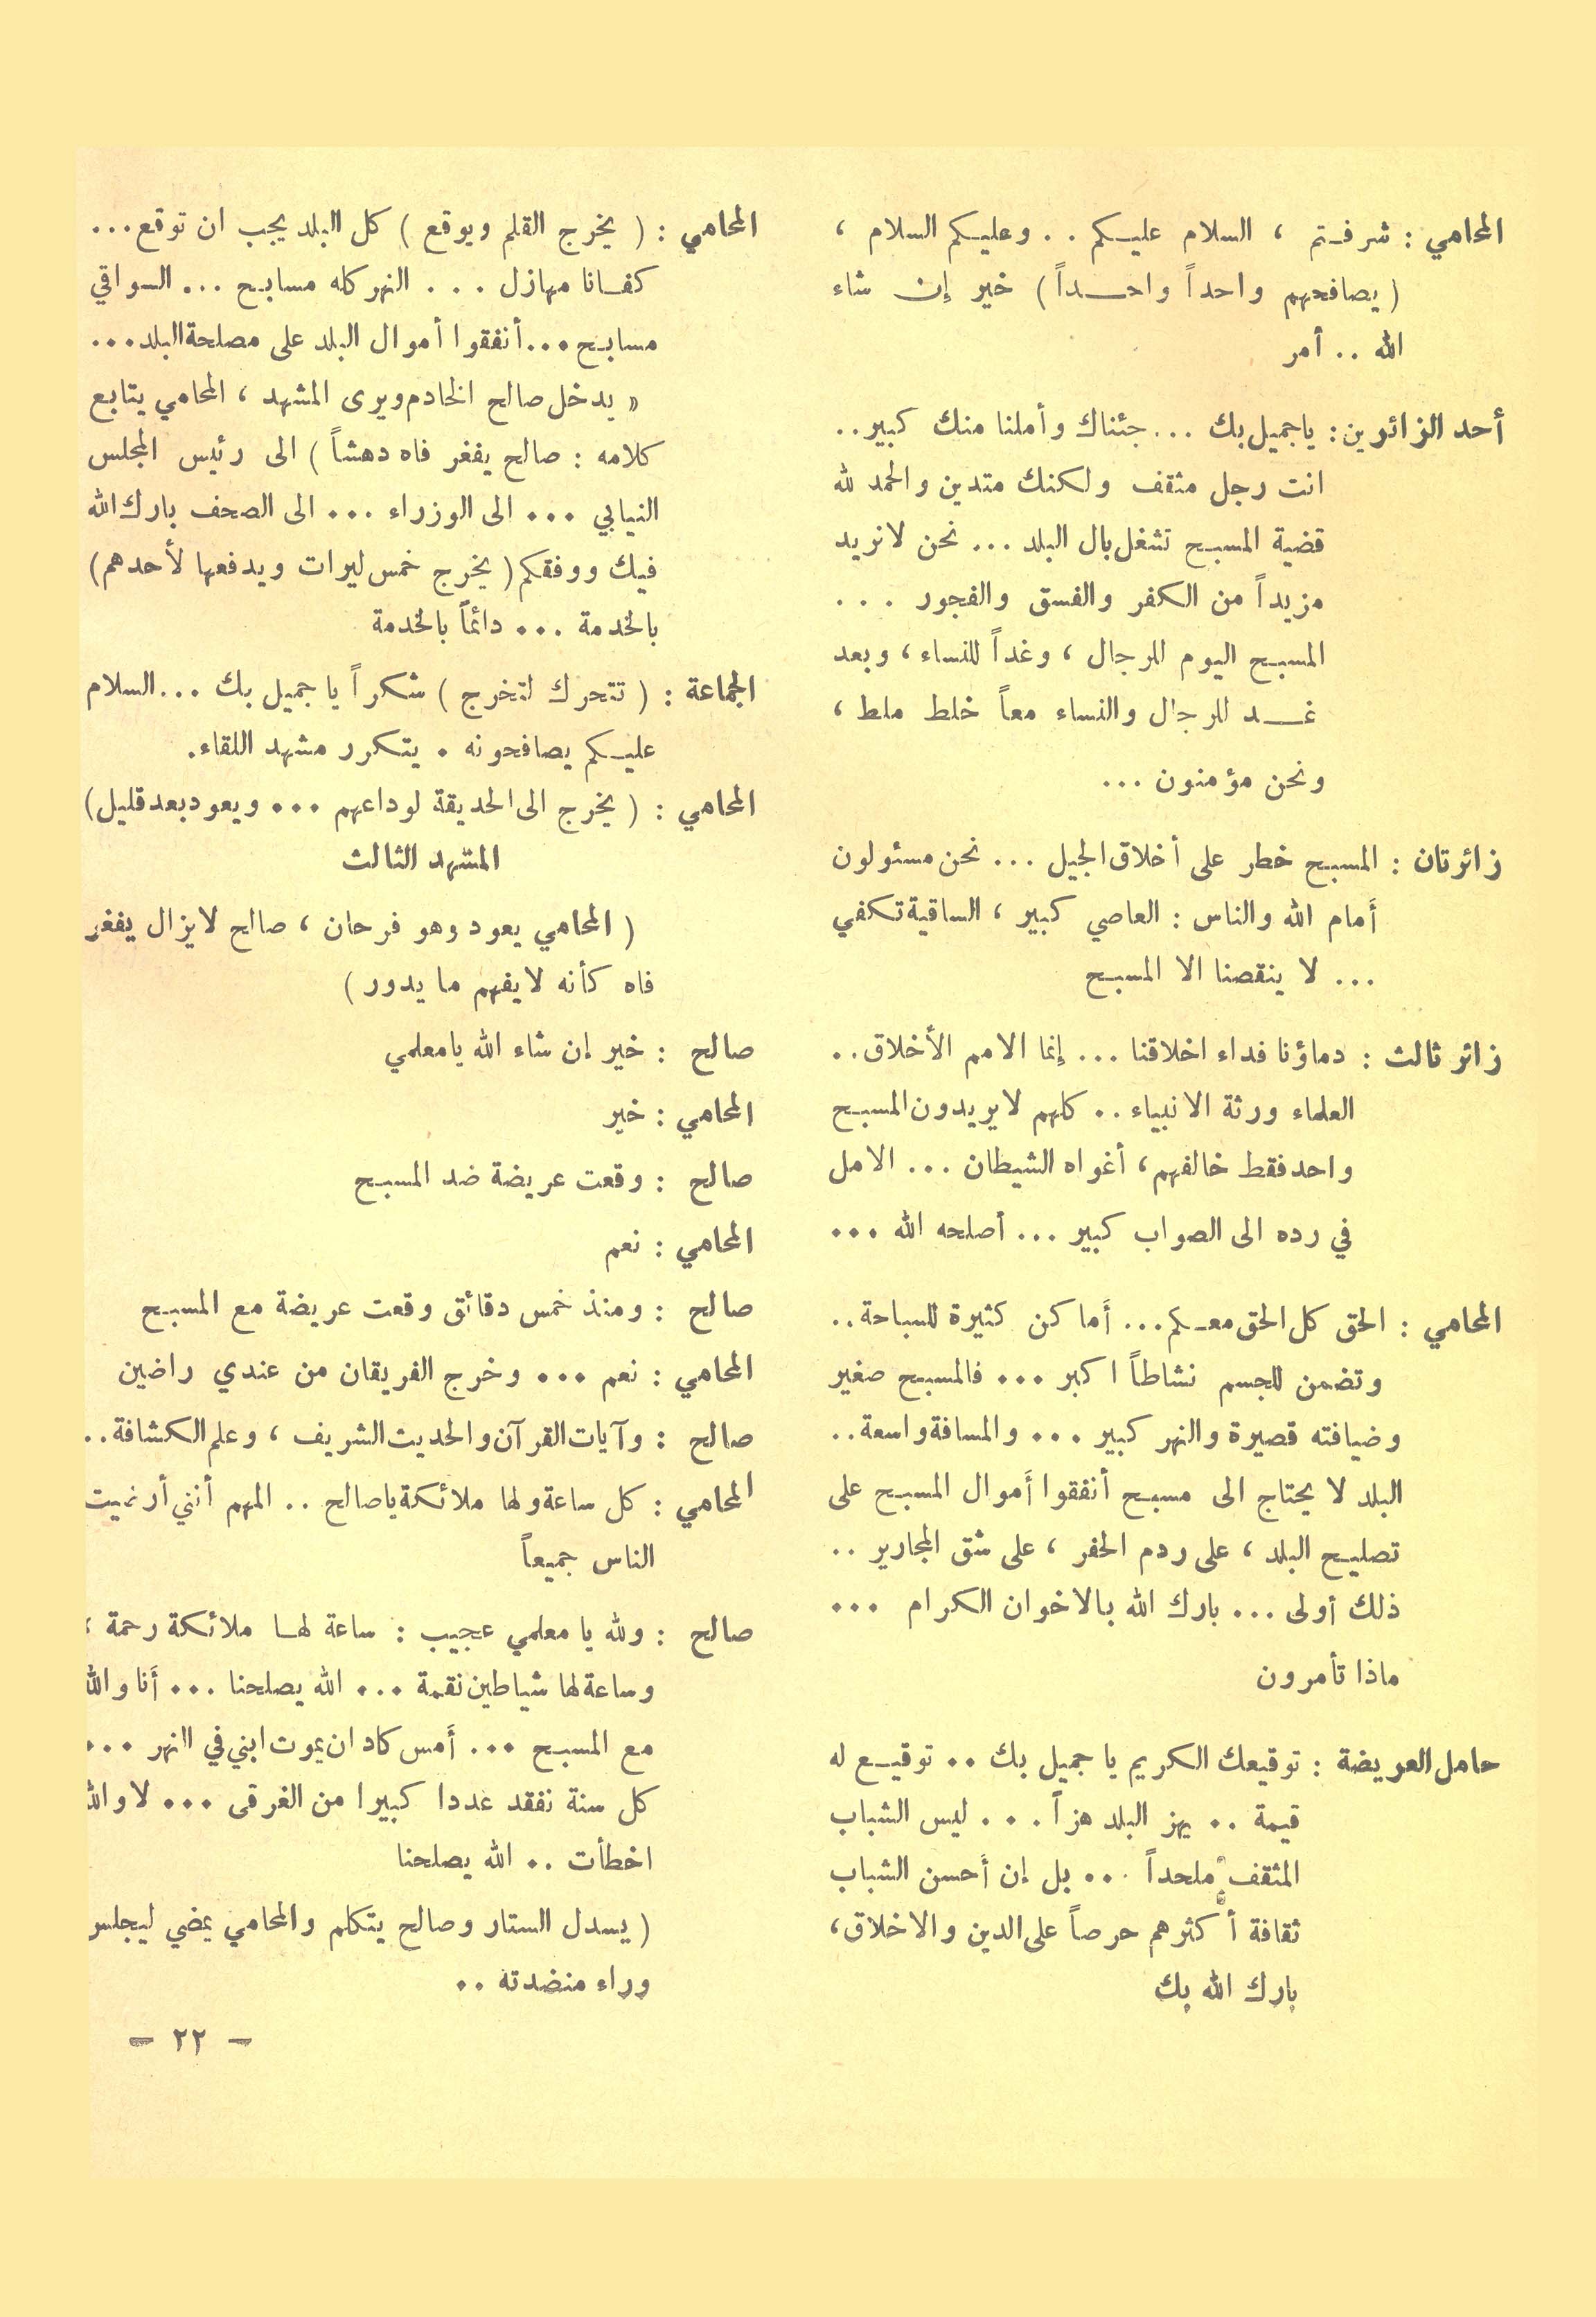 المحامي : شرفتم ، السلام عليكم .. وعليكم السلام ،
( يصافحهم واحداً واحداً ) خير إن شاء
الله .. أمر
أحد الزائرين : ياجميل بك ... جئناك وأملنا منك كبير ..
انت رجل مثقف ولكنك متدين والحمد لله
قضية المسبح تشغل بال البلد ... نحن لانريد
مزيداً من الكفر والفسق والفجور ...
المسبح اليوم للرجال ، وغداً للنساء ، وبعد
غد للرجال والنساء معاً خلط ملط ،
ونحن مؤمنون ...
زائرتان : المسبح خطر على أخلاق الجيل ... نحن مسئولون
أمام الله والناس : العاصي كبير ، الساقية تكفي
... لا ينقصنا الا المسبح
زائر ثالث : دماؤنا فداء اخلاقنا ... إنما الامم الأخلاق ..
العلماء ورثة الانبياء .. كلهم لايريدون المسبح
واحد فقط خالفهم ، أغواه الشيطان ... الامل
في رده الى الصواب كبير ... أصلحه الله ...
المحامي : الحق كل الحق معكم ... أماكن كثيرة للسباحة ..
وتضمن للجسم نشاطاً اكبر ... فالمسبح صغير
وضيافته قصيرة والنهر كبير ... والمسافة واسعة ..
البلد لا يحتاج الى مسبح أنفقوا أموال المسبح على
تصليح البلد ، على ردم الحفر ، على شق المجارير ..
ذلك أولى ... بارك الله بالاخوان الكرام ...
ماذا تأمرون
حامل العريضة : توقيعك الكريم يا جميل بك .. توقيع له
قيمة .. يهز البلد هزاً ... ليس الشباب
المثقف ملحداً ... بل إن أحسن الشباب
ثقافة أكثرهم حرصاً على الدين والاخلاق ،
بارك الله بك
المحامي : ( يخرج القلم ويوقع ) كل البلد يجب ان توقع ...
كفانا مهازل ... النهر كله مسابح ... السواقي
مسابح ... أنفقوا أموال البلد على مصلحة البلد ...
« يدخل صالح الخادم ويرى المشهد ، المحامي يتابع
كلامه : صالح يفغر فاه دهشاً ) الى رئيس المجلس
النيابي ... الى الوزراء ... الى الصحف بارك الله
فيك ووفقكم ( يخرج خمس ليرات ويدفعها لأحدهم )
بالخدمة ... دائماً بالخدمة
الجماعة : ( تتحرك لتخرج ) شكراً يا جميل بك ... السلام
عليكم يصافحونه . يتكرر مشهد اللقاء .
المحامي : ( يخرج الى الحديقة لوداعهم ... ويعود بعد قليل )
المشهد الثالث
( المحامي يعود وهو فرحان ، صالح لايزال يفغر
فاه كأنه لايفهم ما يدور )
صالح : خير إن شاء الله يامعلمي
المحامي : خير
صالح : وقعت عريضة ضد المسبح
المحامي : نعم
صالح : ومنذ خمس دقائق وقعت عريضة مع المسبح
المحامي : نعم ... وخرج الفريقان من عندي راضين
صالح : وآيات القرآن والحديث الشريف ، وعلم الكشافة ..
المحامي : كل ساعة ولها ملائكة ياصالح .. المهم أنني أرضيت
الناس جميعاً
صالح : ولله يا معلمي عجيب : ساعة لها ملائكة رحمة ،
وساعة لها شياطين نقمة ... الله يصلحنا ... أنا والله
مع المسبح ... أمس كاد ان يموت ابني في النهر ...
كل سنة نفقد عددا كبيرا من الغرقى ... لا والله
اخطأت .. الله يصلحنا
( يسدل الستار وصالح يتكلم والمحامي يمضي ليجلس
وراء منضدته ..
- ٢٢ -